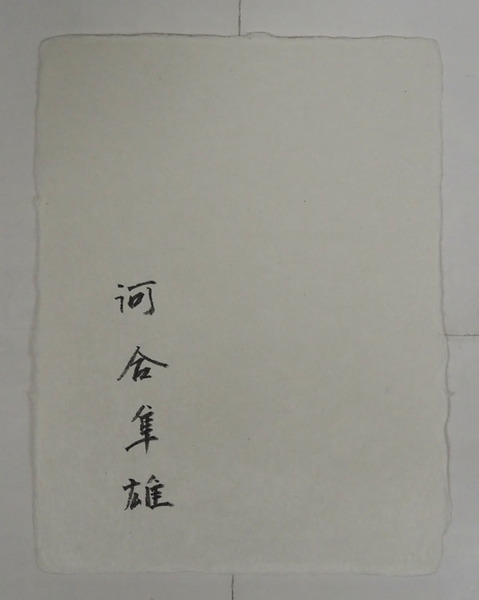 河合隼雄